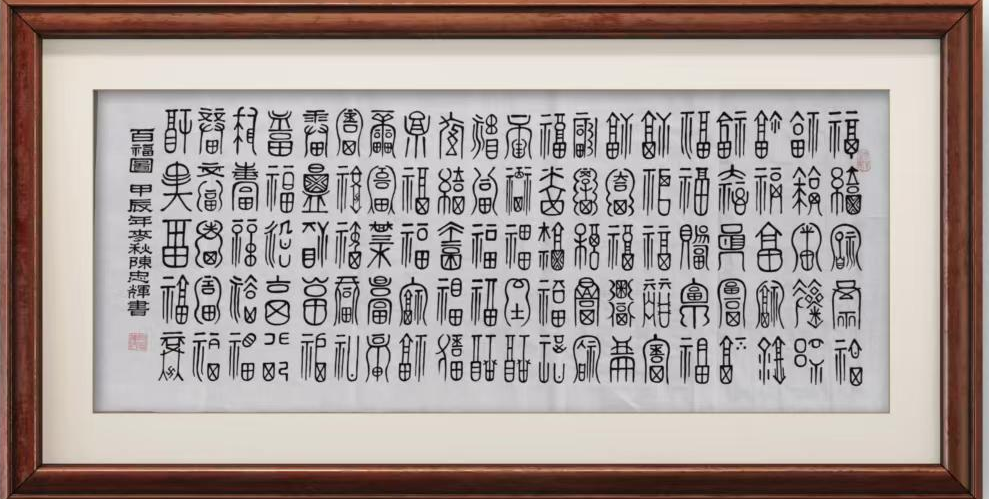 福福福福福
福福福福福
福福福福福
福福福福福
福福福福福
福福福福福
福福福福福
福福福福福
福福福福福
福福福福福
福福福福福
福福福福福
福福福福福
福福福福福
福福福福福
福福福福福
福福福福福
福福福福福
福福福福福
福福福福福
百福圖 甲辰年麥秋陳忠輝書